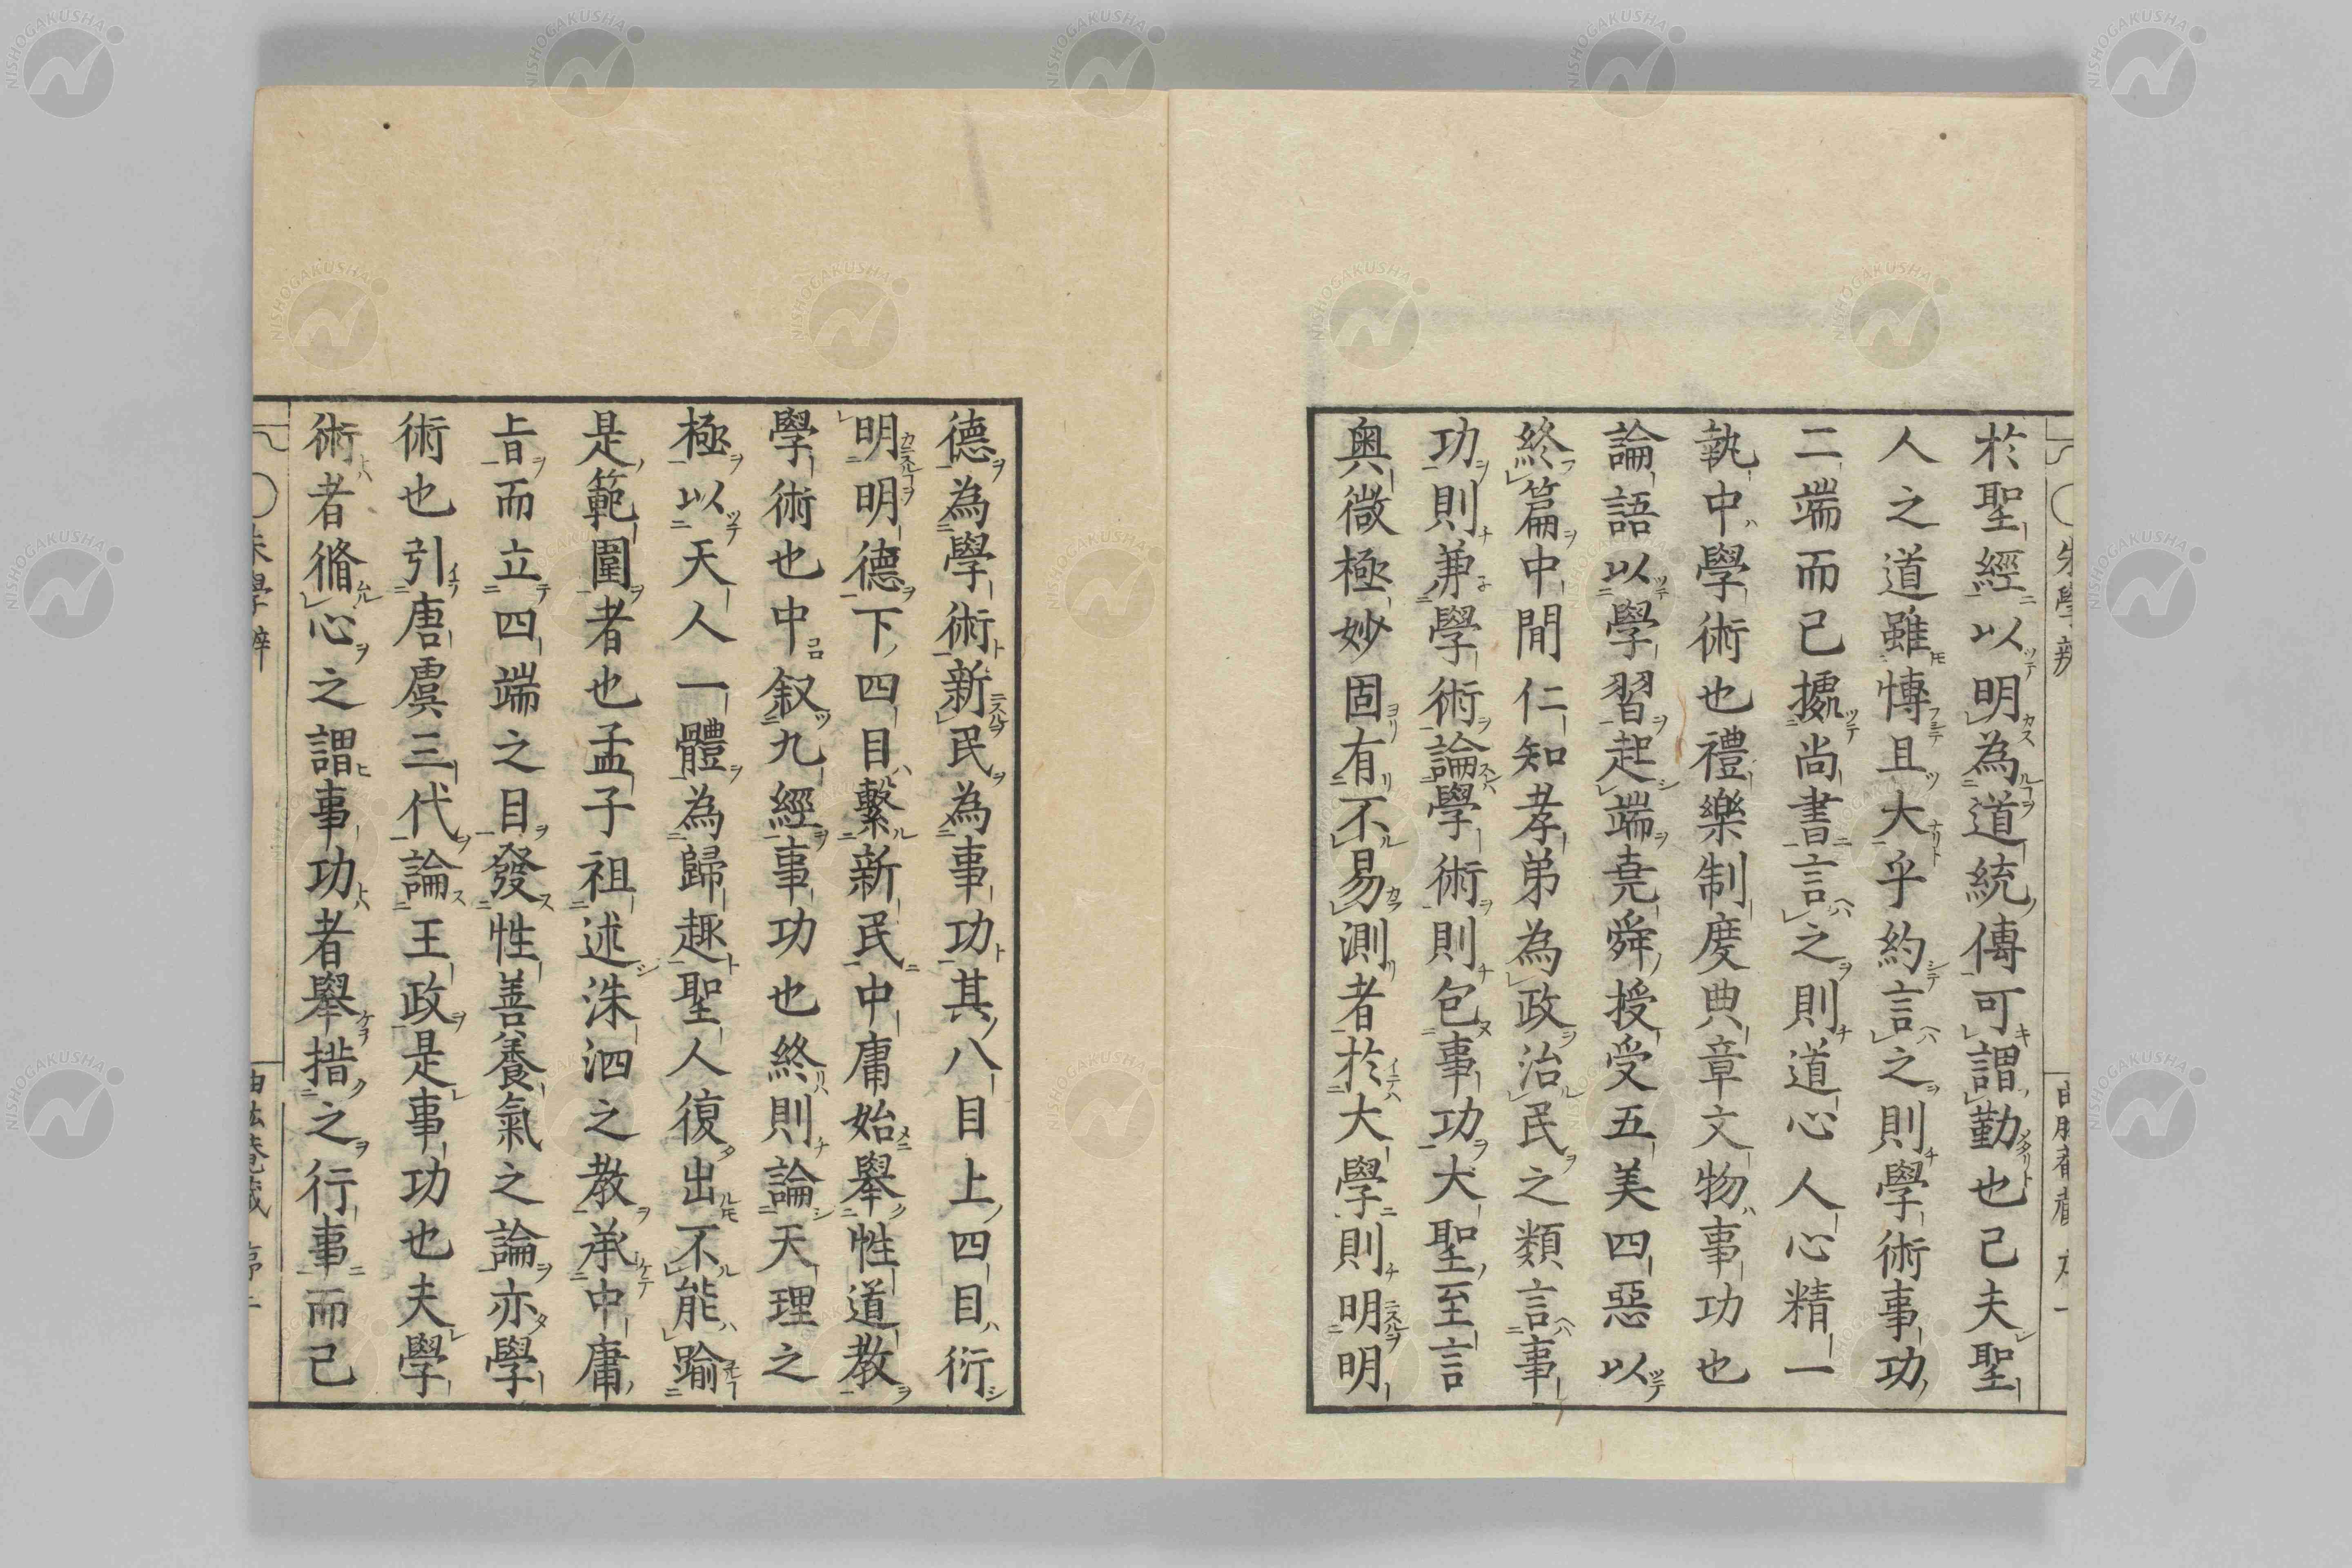 於聖經以明為道統傳可謂勤也已夫聖
人之道雖博且大乎約言之則學術事功
二端而已據尚書言之則道心人心精一
執中學術也禮樂制度典章文物事功也
論語以學習起端堯舜授受五美四惡以
終篇中間仁知孝弟為政治民之類言事
功則兼學術論學術則包事功大聖至言
奧微極妙固有不易測者於大學則明明
德為學術新民為事功其八目上四目衍
明明德下四目繫新民中庸始舉性道教
學術也中叙九經事功也終則論天理之
極以天人一體為歸趣聖人復出不能踰
是範圍者也孟子祖述洙泗之教承中庸
旨而立四端之目發性善養氣之論亦學
術也引唐虞三代論王政是事功也夫學
術者脩心之謂事功者舉措之行事而已
NISHOGAKUSHA